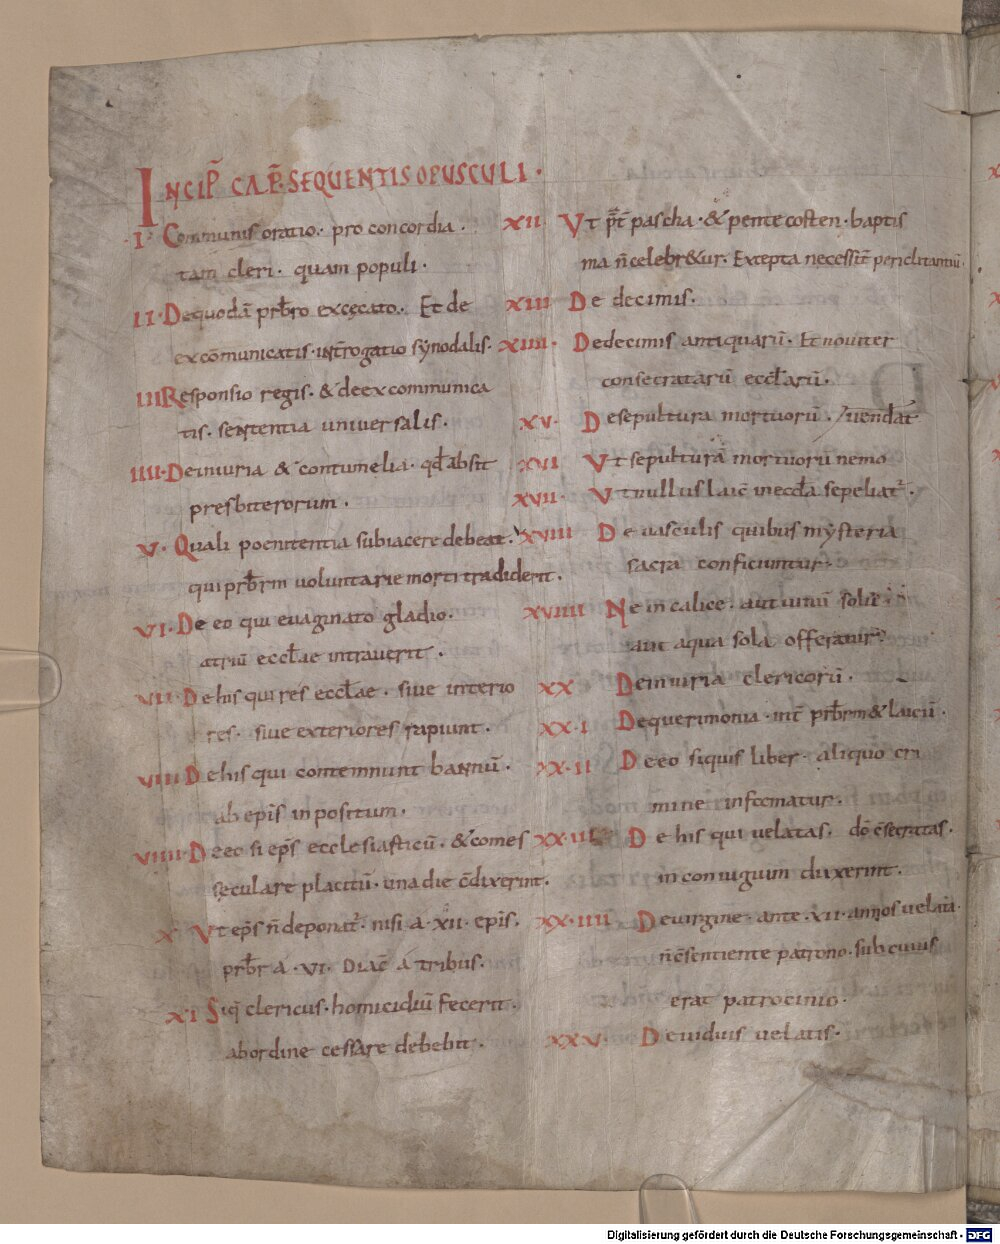 INCIP̄ CAP̄ SEQUENTIS OPUSCULI·
·I· Communis oratio· pro concordia·
tam cleri· quam populi·
II· De quodā prb̄ro excęcato· Et de
excōmunicatis· int̄rogatio synodalis·
III Responsio regis· & de excommunica
tis· sententia universalis·
IIII· De iniuria & contumelia· qd̄ absit
presbiterorum·
V· Quali poenitentia subiacere debeat·
qui prb̄rm voluntarie morti tradiderit·
VI· De eo qui evaginato gladio·
atriū eccl̄ae intraverit·
VII· De his qui res eccl̄ae· sive interio
res· sive exteriores rapiunt·
VIII De his qui contemnunt bannū·
ab ep̄is inpositum·
VIIII· De eo si ep̄s ecclesiasticū· & comes
sęculare placitū· una die c̄dixerint·
X· Ut ep̄s n̄ deponat̄· nisi a· XII· ep̄is·
prb̄r a· VI· Diac̄ a tribus·
XI Siq̄ clericus· homicidiū fecerit·
ab ordine cessare debebit·
XII· Ut p̄t̄ pascha· & pentecosten· baptis
ma n̄ celebr&ur· Excepta necessit̄ periclitantiū·
XIII De decimis·
XIIII· De decimis antiquarū· Et noviter
consecratarū eccl̄arū·
XV· De sepultura mortuorū· / vendat
XVI Ut sepulturā mortuorū nemo
XVII· Ut nullus laic̄ in eccl̄a sepeliat̄·
XVIII De vasculis quibus mysteria
sacra conficiuntur·
XVIIII Ne in calice· aut vinū solū
aut aqua sola offeratur·
XX De iniuria clericorū·
XX·I De querimonia· int̄ prb̄rm & laicū·
XX·II De eo siquis liber· aliquo cri
mine infamatur·
XX·III De his qui velatas· dō c̄secratas·
in coniugium duxerint·
XX·IIII De virgine· ante· XII· annos velata·
n̄ c̄sentiente patrono· sub cuius
erat patrocinio·
XXV· De viduis velatis·
Digitalisierung gefördert durch die Deutsche Forschungsgemeinschaft - DFG